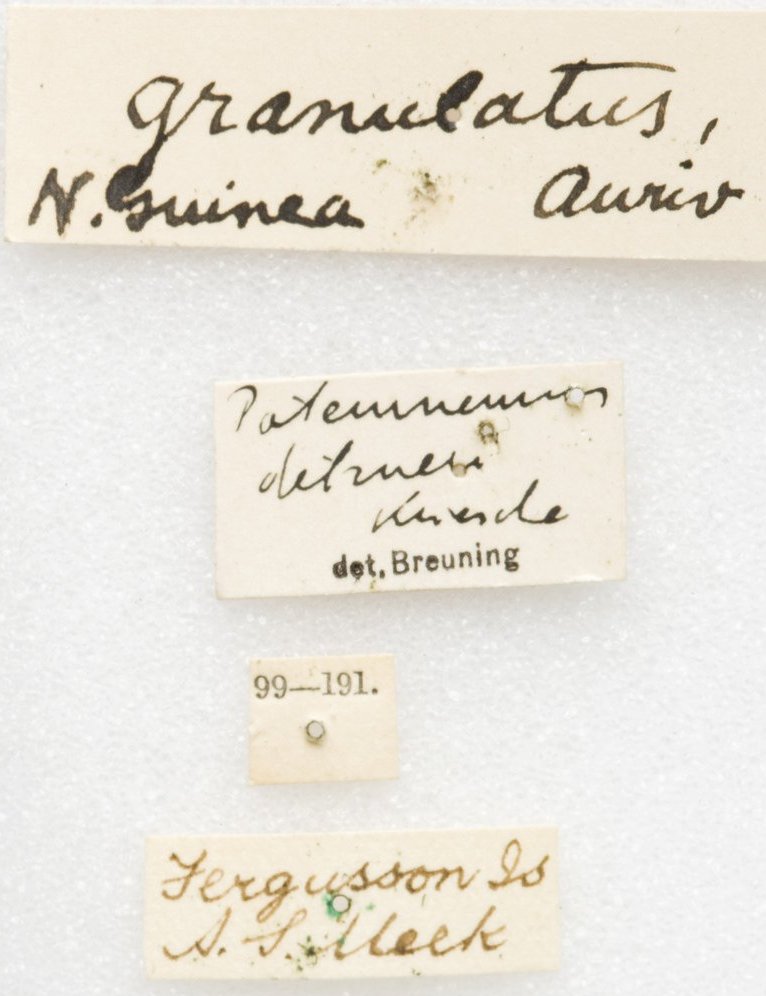 granulatus,
N. Guinea Auriv
Potemnemus
detzneri
Kriesche
det. Breuning
99—191.
Fergusson Is
A. S. Meek